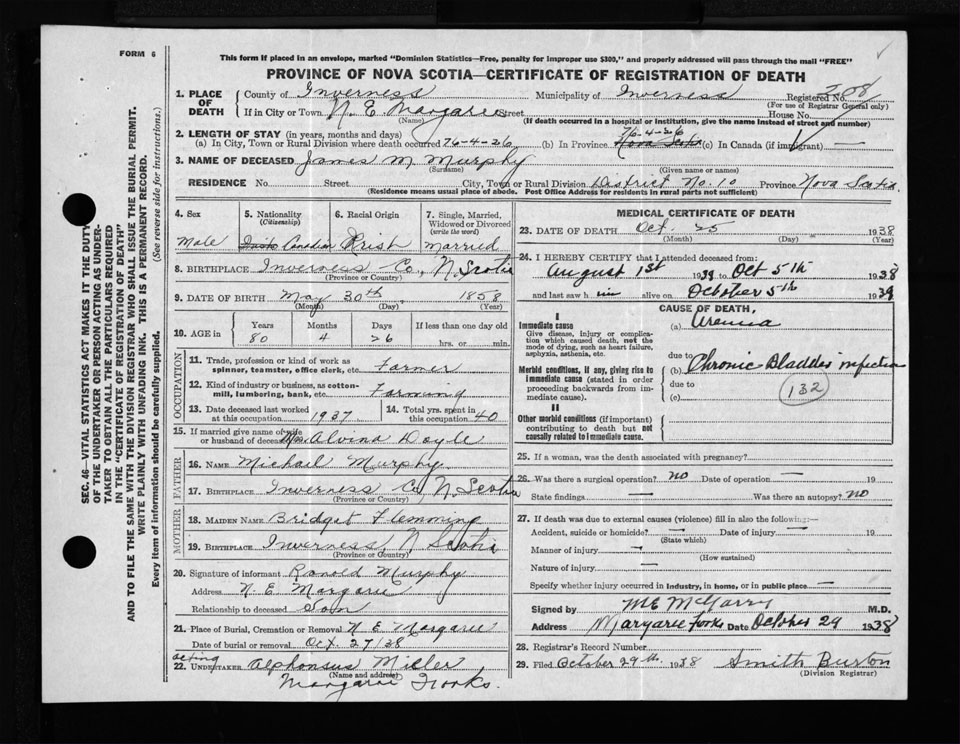 FORM 6
This form if placed in an envelope, marked "Dominion Statistics—Free, penalty for improper use $300," and properly addressed will pass through the mail "FREE"
PROVINCE OF NOVA SCOTIA—CERTIFICATE OF REGISTRATION OF DEATH
SEC. 46—VITAL STATISTICS ACT MAKES IT THE DUTY
OF THE UNDERTAKER OR PERSON ACTING AS UNDER-
TAKER TO OBTAIN ALL THE PARTICULARS REQUIRED
IN THE "CERTIFICATE OF REGISTRATION OF DEATH"
AND TO FILE THE SAME WITH THE DIVISION REGISTRAR WHO SHALL ISSUE THE BURIAL PERMIT.
WRITE PLAINLY WITH UNFADING INK. THIS IS A PERMANENT RECORD.
Every item of information should be carefully supplied. (See reverse side for instructions.)
1. PLACE OF DEATH County of Inverness Municipality of Inverness Registered No. 208
(For use of Registrar General only)
If in City or Town N. E. Margaree Street House No.
(Name) (If death occurred in a hospital or institution, give the name instead of street and number)
2. LENGTH OF STAY (in years, months and days) 76-4-26
(a) In City, Town or Rural Division where death occurred 76-4-26. (b) In Province Nova Scotia (c) In Canada (if immigrant) —
3. NAME OF DECEASED James M. Murphy
(Surname) (Given name or names)
RESIDENCE No. Street City, Town or Rural Division District No. 10 Province Nova Scotia
(Residence means usual place of abode. Post Office Address for Residents in rural parts not sufficient)
4. Sex Male
5. Nationality (Citizenship) Canadian
6. Racial Origin Irish
7. Single, Married, Widowed or Divorced (write the word) Married
8. BIRTHPLACE Inverness Co., N. Scotia
(Province or Country)
9. DATE OF BIRTH May 30th, 1858
(Month) (Day) (Year)
10. AGE in Years Months Days If less than one day old
80 4 26 hrs. or min.
OCCUPATION
11. Trade, profession or kind of work as spinner, teamster, office clerk, etc. Farmer
12. Kind of industry or business, as cotton-mill, lumbering, bank, etc. Farming
13. Date deceased last worked at this occupation 1937 14. Total yrs. spent in this occupation 40
15. If married give name of wife or husband of deceased Mrs Alvina Doyle
FATHER
16. Name Michael Murphy
17. Birthplace Inverness Co N. Scotia
(Province or Country)
MOTHER
18. Maiden Name Bridget Flemming
19. Birthplace Inverness, N Scotia
(Province or Country)
20. Signature of informant Ronold Murphy
Address N. E. Margaree
Relationship to deceased Son
21. Place of Burial, Cremation or Removal N E Margaree
Date of burial or removal Oct. 27/38
acting
22. Undertaker Alphonsus Miller
(Name and address)
Margaree Forks.
MEDICAL CERTIFICATE OF DEATH
23. DATE OF DEATH Oct. 25 1938
(Month) (Day) (Year)
24. I HEREBY CERTIFY that I attended deceased from:
August 1st 1939 to Oct 5th 1938
and last saw h im alive on October 5th 1939
CAUSE OF DEATH,
I
Immediate cause (a) Uremia
Give disease, injury or complica-
tion which caused death, not the
mode of dying, such as heart failure,
asphyxia, asthenia, etc.
due to
Morbid conditions, if any, giving rise to (b) Chronic Bladder infection
immediate cause (stated in order due to
proceeding backwards from im- (c) 132
mediate cause).
II
Other morbid conditions (if important)
contributing to death but not
causally related to immediate cause.
25. If a woman, was the death associated with pregnancy?
26. Was there a surgical operation? no Date of operation — 19
State findings — Was there an autopsy? no
27. If death was due to external causes (violence) fill in also the following:—
Accident, suicide or homicide? — Date of injury — 19
(State which)
Manner of injury —
(How sustained)
Nature of injury —
Specify whether injury occurred in industry, in home, or in public place —
Signed by McGarry M.D.
Address Margaree Forks Date October 29 1938
28. Registrar's Record Number
29. Filed October 29th. 1938 Smith Burton
(Division Registrar)